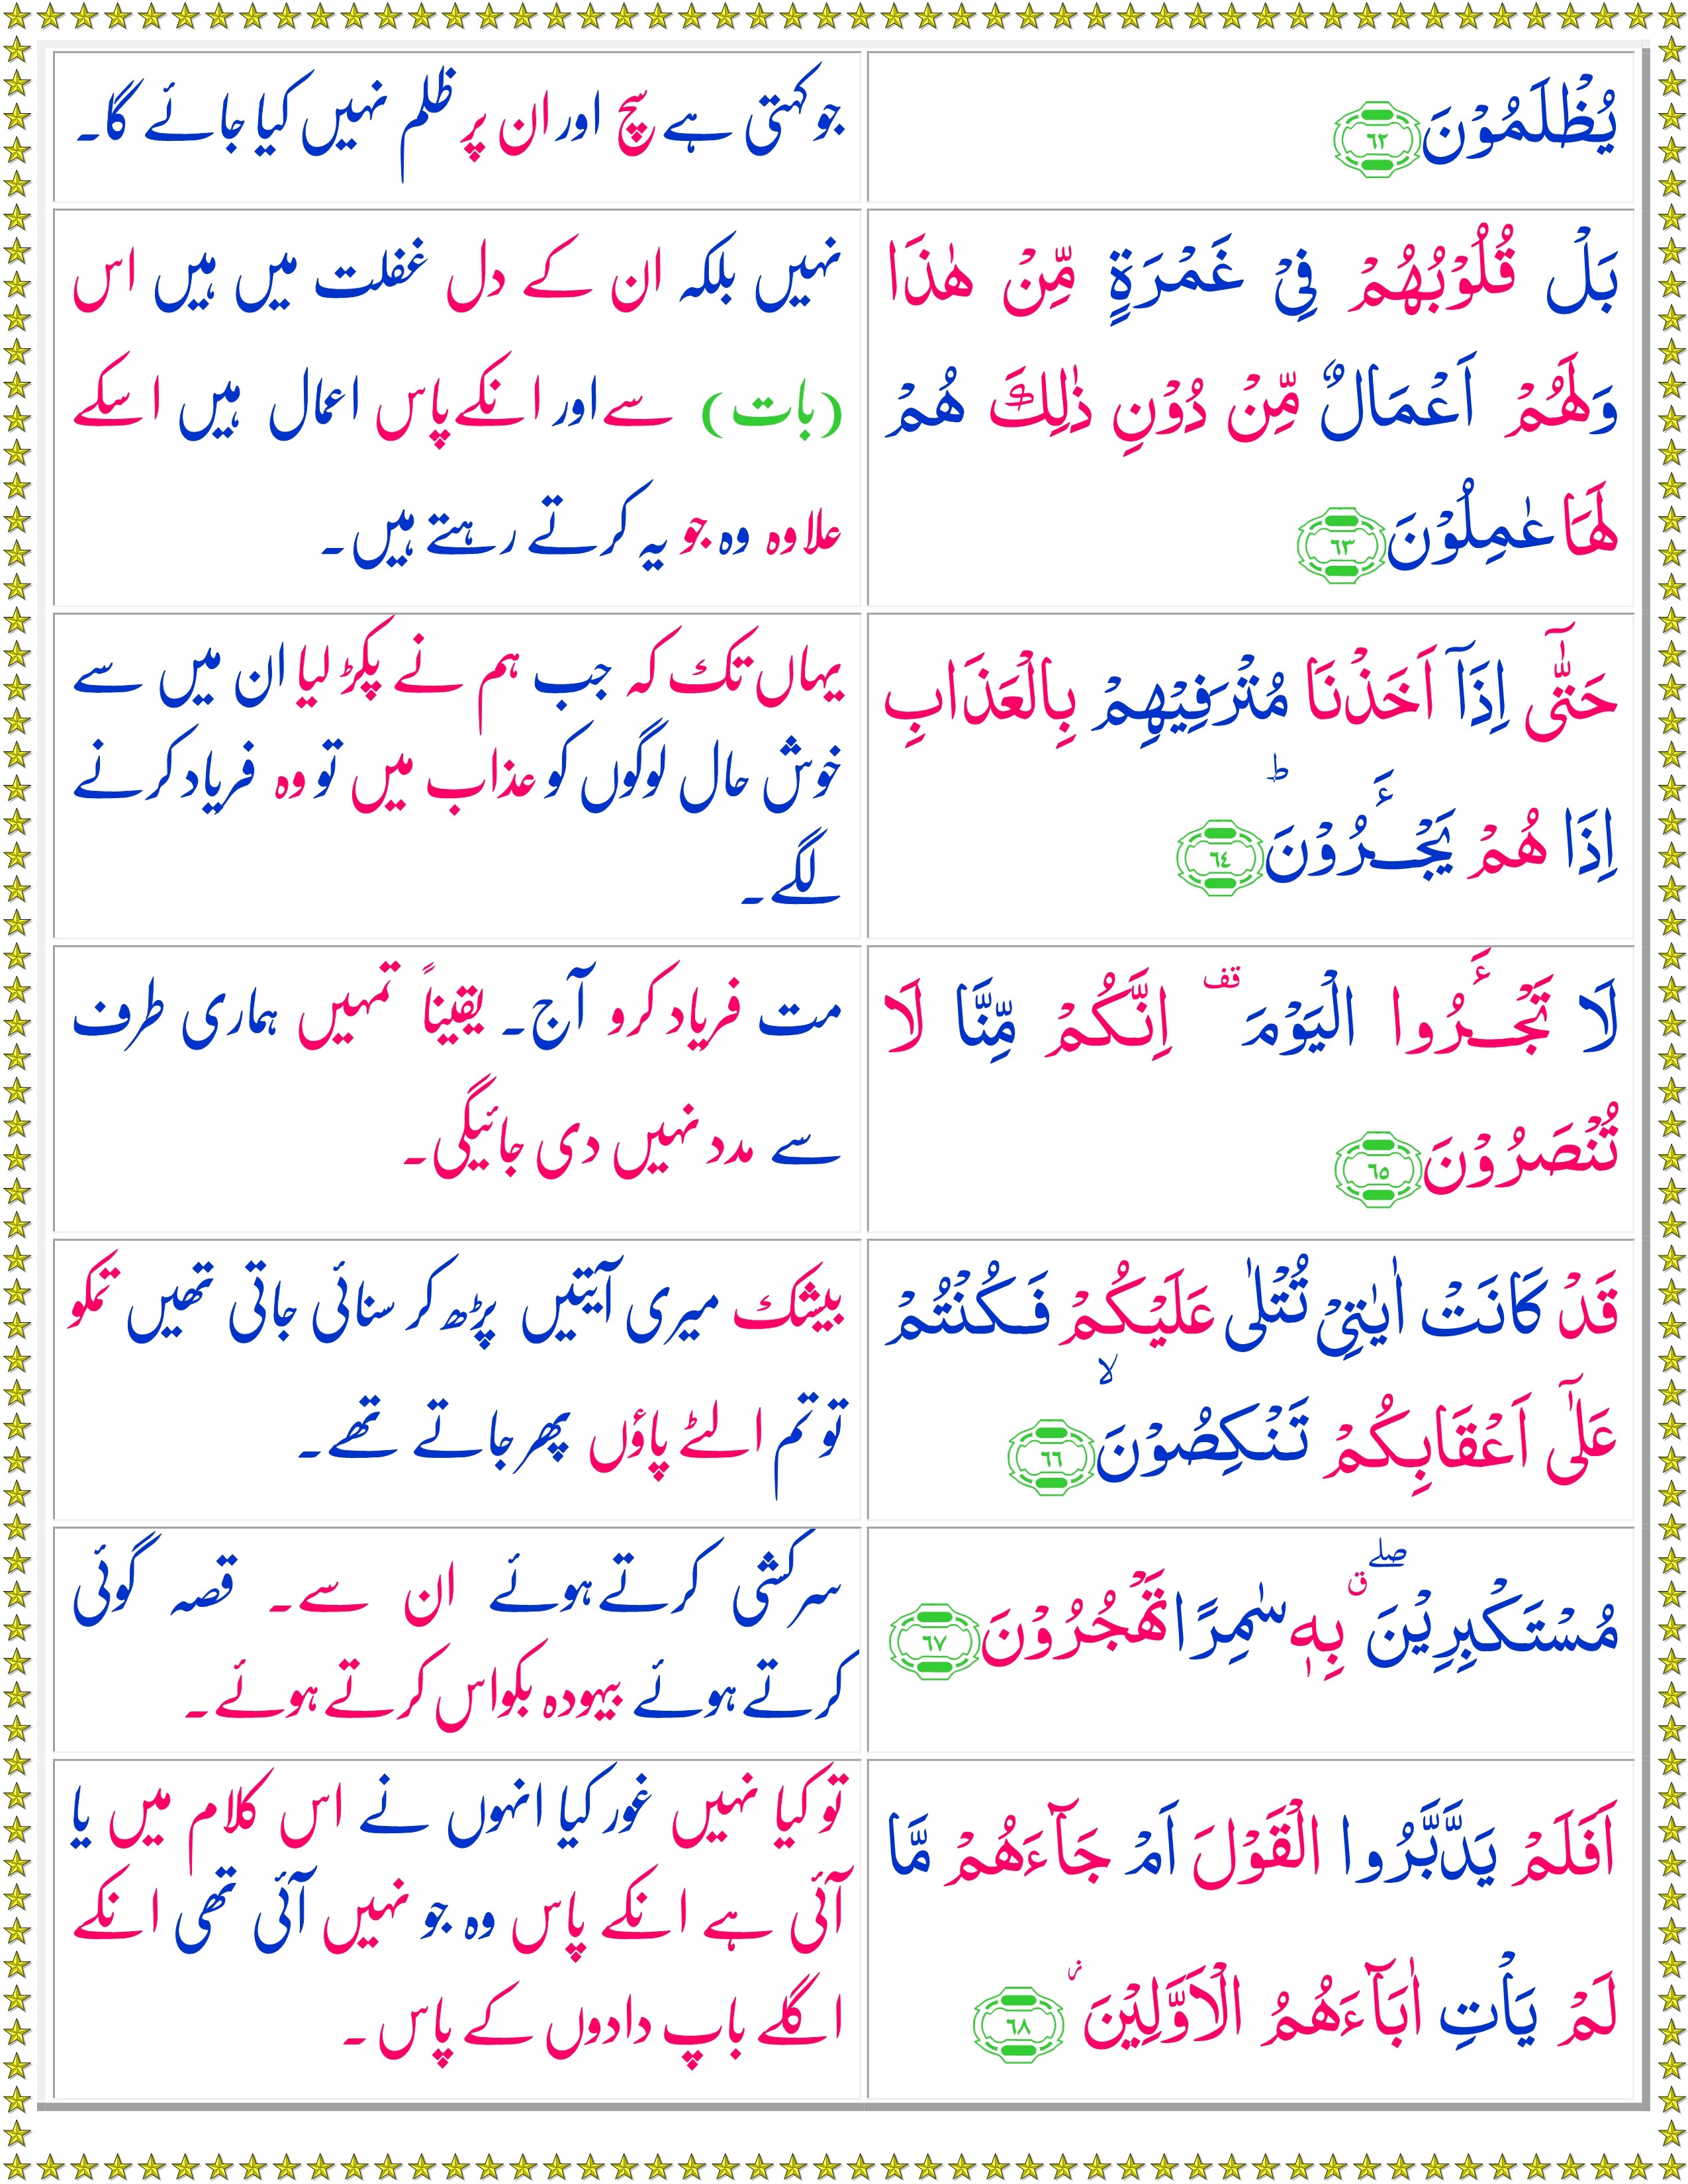 يُظْلَمُوْنَ ٦٢
جو کہتی ہے سچ اور ان پر ظلم نہیں کیا جائے گا۔
بَلْ قُلُوْبُهُمْ فِىْ غَمْرَةٍ مِّنْ هٰذَا
وَلَهُمْ اَعْمَالٌ مِّنْ دُوْنِ ذٰلِكَ هُمْ
لَهَا عٰمِلُوْنَ ٦٣
نہیں بلکہ ان کے دل غفلت میں ہیں اس
(بات) سے اور انکے پاس اعمال ہیں اسکے
علاوہ وہ جو یہ کرتے رہتے ہیں۔
حَتّٰٓى اِذَاۤ اَخَذْنَا مُتْرَفِيْهِمْ بِالْعَذَابِ
اِذَا هُمْ يَجْـَٔرُوْنَ ؕ ٦٤
یہاں تک کہ جب ہم نے پکڑ لیا ان میں سے
خوش حال لوگوں کو عذاب میں تو وہ فریاد کرنے
لگے۔
لَا تَجْـَٔرُوا الْيَوْمَ ۖ اِنَّكُمْ مِّنَّا لَا
تُنْصَرُوْنَ ٦٥
مت فریاد کرو آج۔ یقیناً تمہیں ہماری طرف
سے مدد نہیں دی جائیگی۔
قَدْ كَانَتْ اٰيٰتِىْ تُتْلٰى عَلَيْكُمْ فَكُنْتُمْ
عَلٰٓى اَعْقَابِكُمْ تَنْكِصُوْنَ ۙ ٦٦
بیشک میری آیتیں پڑھ کر سنائی جاتی تھیں تمکو
تو تم الٹے پاؤں پھر جاتے تھے۔
مُسْتَكْبِرِيْنَ ۖ ق بِهٖ سٰمِرًا تَهْجُرُوْنَ ٦٧
سرکشی کرتے ہوئے ان سے۔ قصہ گوئی
کرتے ہوئے بیہودہ بکواس کرتے ہوئے۔
اَفَلَمْ يَدَّبَّرُوا الْقَوْلَ اَمْ جَآءَهُمْ مَّا
لَمْ يَاْتِ اٰبَآءَهُمُ الْاَوَّلِيْنَ ز ٦٨
تو کیا نہیں غور کیا انہوں نے اس کلام میں یا
آئی ہے انکے پاس وہ جو نہیں آئی تھی انکے
اگلے باپ دادوں کے پاس۔